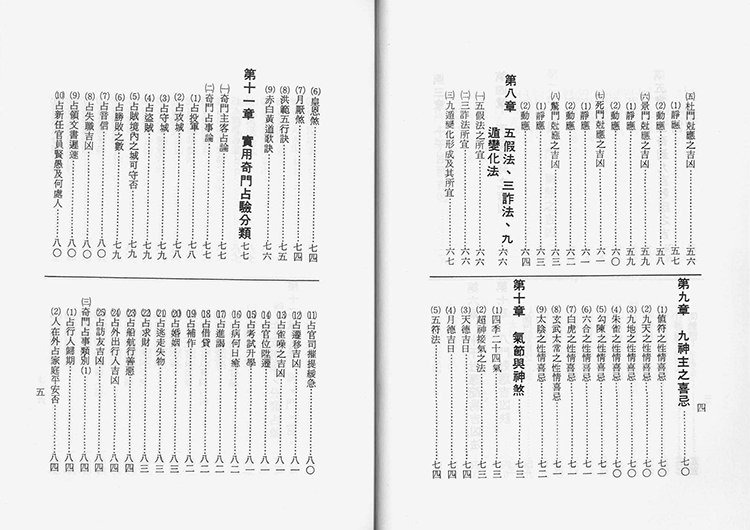 ㈤杜門尅應之吉凶……五六
⑴靜應……五七
⑵動應……五八
㈥景門尅應之吉凶……五九
⑴靜應……五九
⑵動應……五九
㈦死門尅應之吉凶……六一
⑴靜應……六一
⑵動應……六二
㈧驚門尅應之吉凶……六二
⑴靜應……六三
⑵動應……六四
第八章 五假法、三詐法、九
遁變化法……六六
㈠五假法之所宜……六六
㈡三詐法所宜……六六
㈢九遁變化形成及其所宜……六七
第九章 九神主之喜忌……七〇
⑴值符之性情喜忌……七〇
⑵九天之性情喜忌……七〇
⑶九地之性情喜忌……七〇
⑷朱雀之性情喜忌……七〇
⑸勾陳之性情喜忌……七一
⑹六合之性情喜忌……七一
⑺白虎之性情喜忌……七一
⑻玄武太常之性情喜忌……七一
⑼太陰之性情喜忌……七二
第十章 氣節與神煞……七三
⑴四季二十四氣……七三
⑵超神接氣之法……七三
⑶天德吉日……七四
⑷月德吉日……七四
⑸五符法……七四
四
⑹皇恩煞……七四
⑺月厭煞……七四
⑻洪範五行訣……七五
⑼赤白黃道歌訣……七六
第十一章 實用奇門占驗分類……七七
㈠奇門主客占論……七七
㈡奇門占事論……七七
⑴占投軍……七八
⑵占攻城……七八
⑶占守城……七九
⑷占盜賊……七九
⑸占賊境內之城可守否……七九
⑹占勝敗之數……七九
⑺占音信……八〇
⑻占失職吉凶……八〇
⑼占領文書遲速……八〇
⑽占新任官員賢愚及何處人……八〇
⑾占官司摧提緩急……八〇
⑿占遷移吉凶……八一
⒀占雀噪之吉凶……八一
⒁占官位陞遷……八一
⒂占考試升學……八一
⒃占病何日癒……八一
⒄占進謁……八二
⒅占借貸……八二
⒆占補作……八二
⒇占婚姻……八二
㉑占逃走失物……八三
㉒占求財……八三
㉓占船航行善惡……八四
㉔占外出行人吉凶……八四
㉕占訪友吉凶……八四
㈢奇門占事類別⑴……八四
⑴占行人歸期……八四
⑵人在外占家庭平安否……八四
五